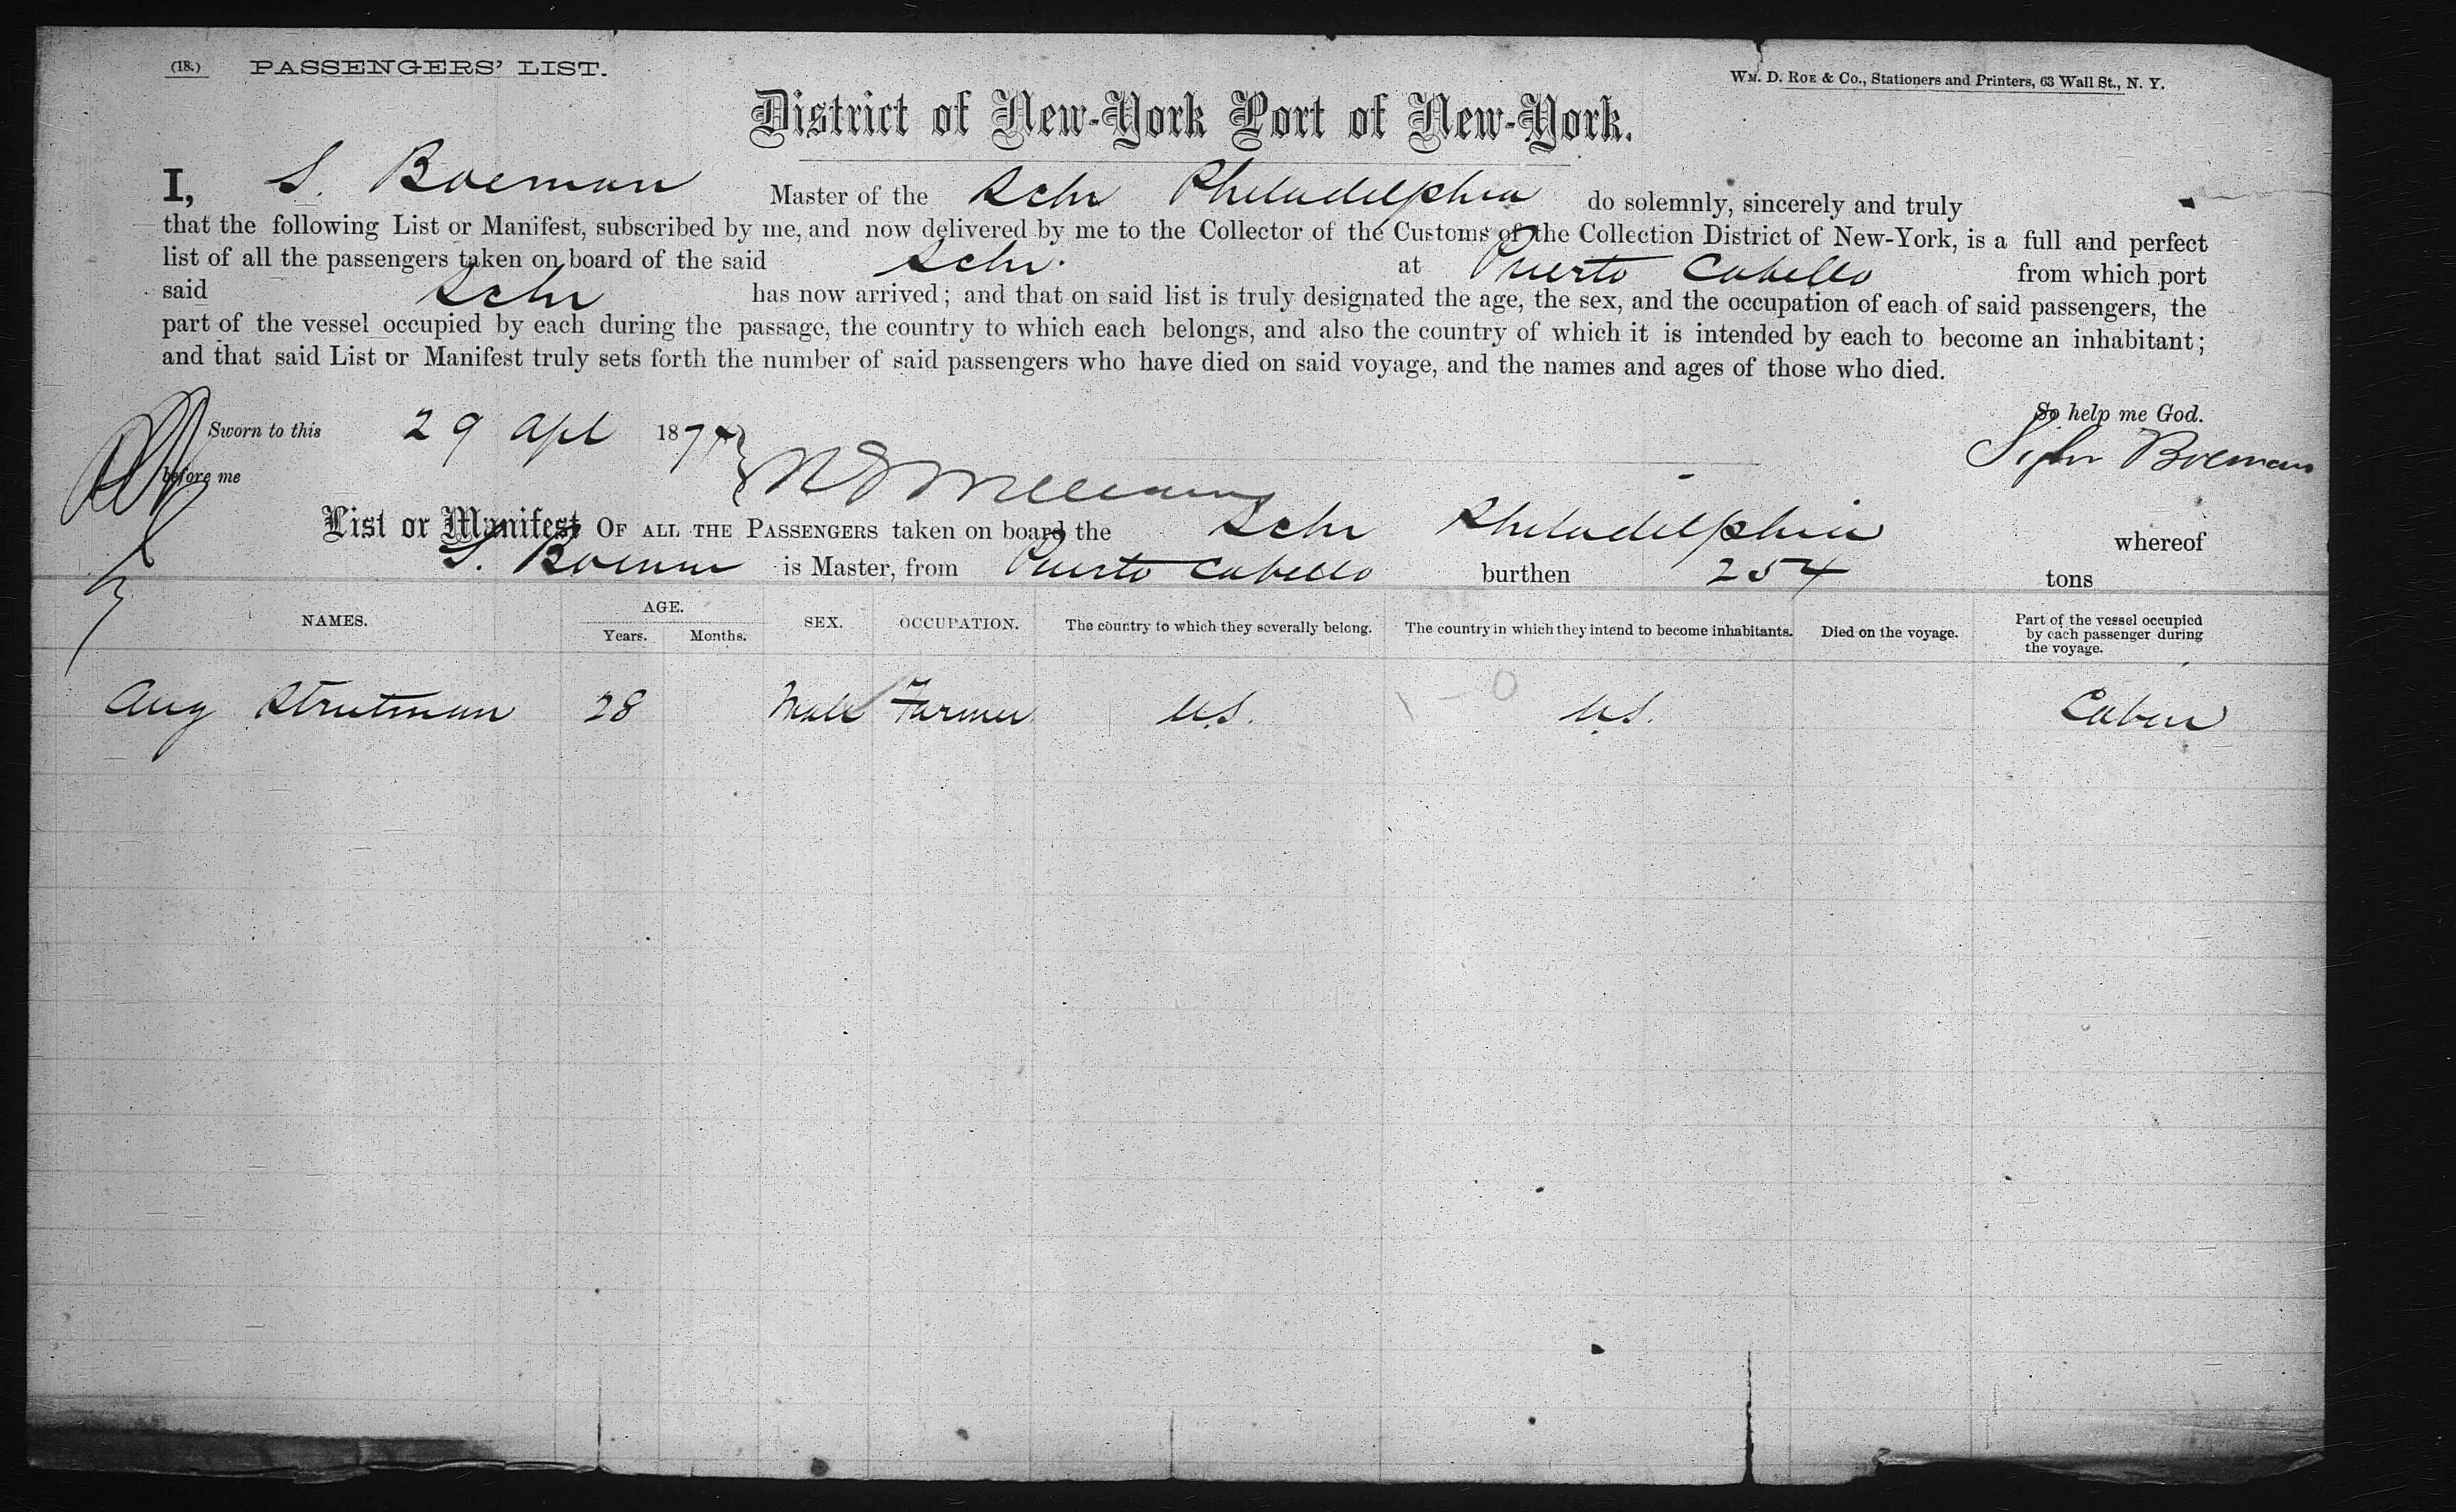 (18.) PASSENGERS' LIST.
WM. D. ROE & CO., Stationers and Printers, 63 Wall St., N. Y.
District of New-York Port of New-York.
I, S. Boeman Master of the Schr Philadelphia do solemnly, sincerely and truly
that the following List or Manifest, subscribed by me, and now delivered by me to the Collector of the Customs of the Collection District of New-York, is a full and perfect
list of all the passengers taken on board of the said Schr. at Puerto Cabello from which port
said Schr has now arrived; and that on said list is truly designated the age, the sex, and the occupation of each of said passengers, the
part of the vessel occupied by each during the passage, the country to which each belongs, and also the country of which it is intended by each to become an inhabitant;
and that said List or Manifest truly sets forth the number of said passengers who have died on said voyage, and the names and ages of those who died.
So help me God.
Sworn to this 29 Apl 1874
Boeman
before me Williams
List or Manifest OF ALL THE PASSENGERS taken on board the Schr Philadelphia whereof
S. Boeman is Master, from Puerto Cabello burthen 254 tons
NAMES. AGE. Years. Months. SEX. OCCUPATION. The country to which they severally belong. The country in which they intend to become inhabitants. Died on the voyage. Part of the vessel occupied by each passenger during the voyage.
Aug Strutman 28 Male Farmer U.S. U.S. Cabin